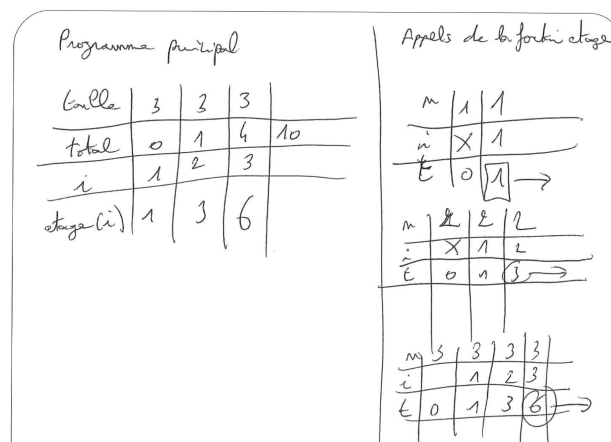 Programme principal
taille 3 3 3
total 0 1 4 10
i 1 2 3
etage(i) 1 3 6
Appels de la fonction etage
n 1 1
i X 1
t 0 1 →
n 2 2 2
i X 1 2
t 0 1 3 →
n 3 3 3 3
i 1 2 3
t 0 1 3 6 →